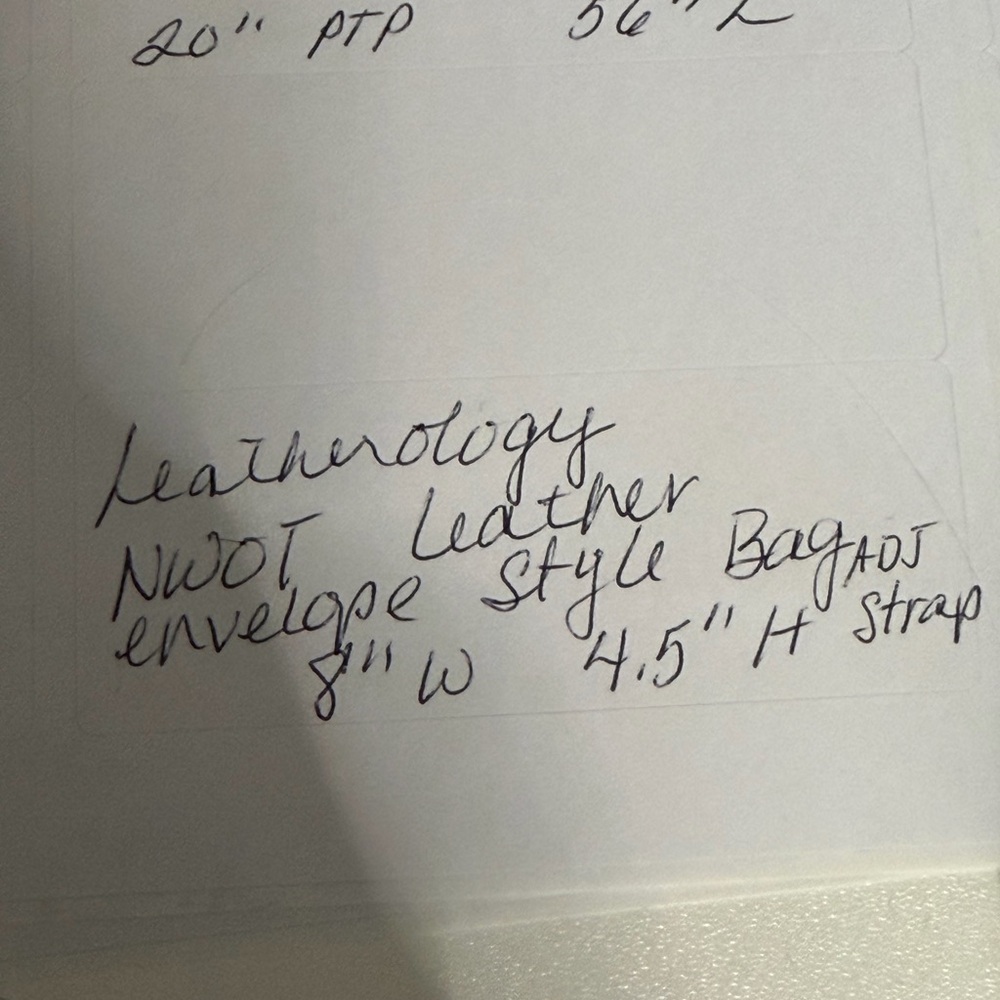 20" PTP 56" L
Leatherology
NWOT Leather
envelope Style Bag ADJ
8" W 4.5" H Strap